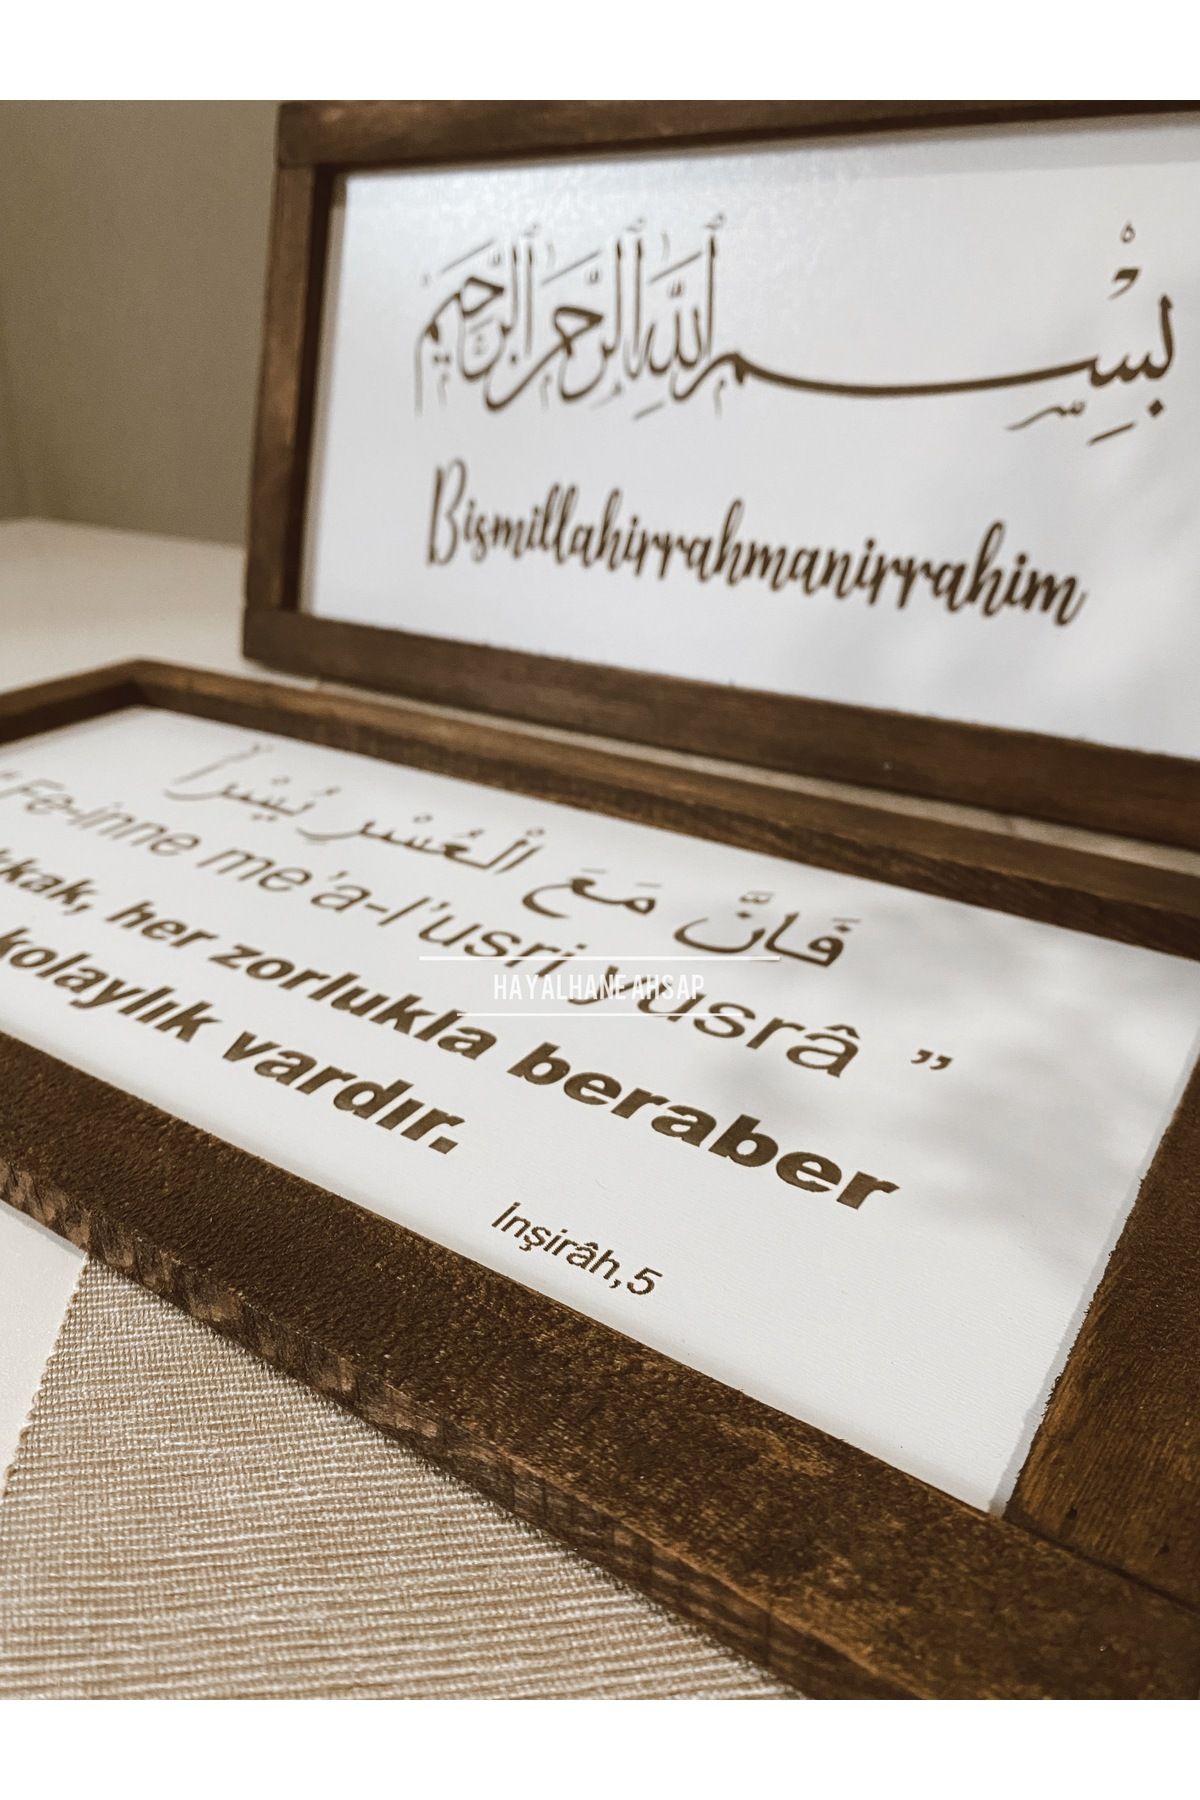 بِسْمِ اللهِ الرَّحْمٰنِ الرَّحِيمِ
Bismillahirrahmanirrahim
فَاِنَّ مَعَ الْعُسْرِ يُسْراً
“ Fe-inne me’a-l’usri yusrâ ”
her zorlukla beraber
kolaylık vardır.
İnşirâh,5
HAYALHANE AHSAP